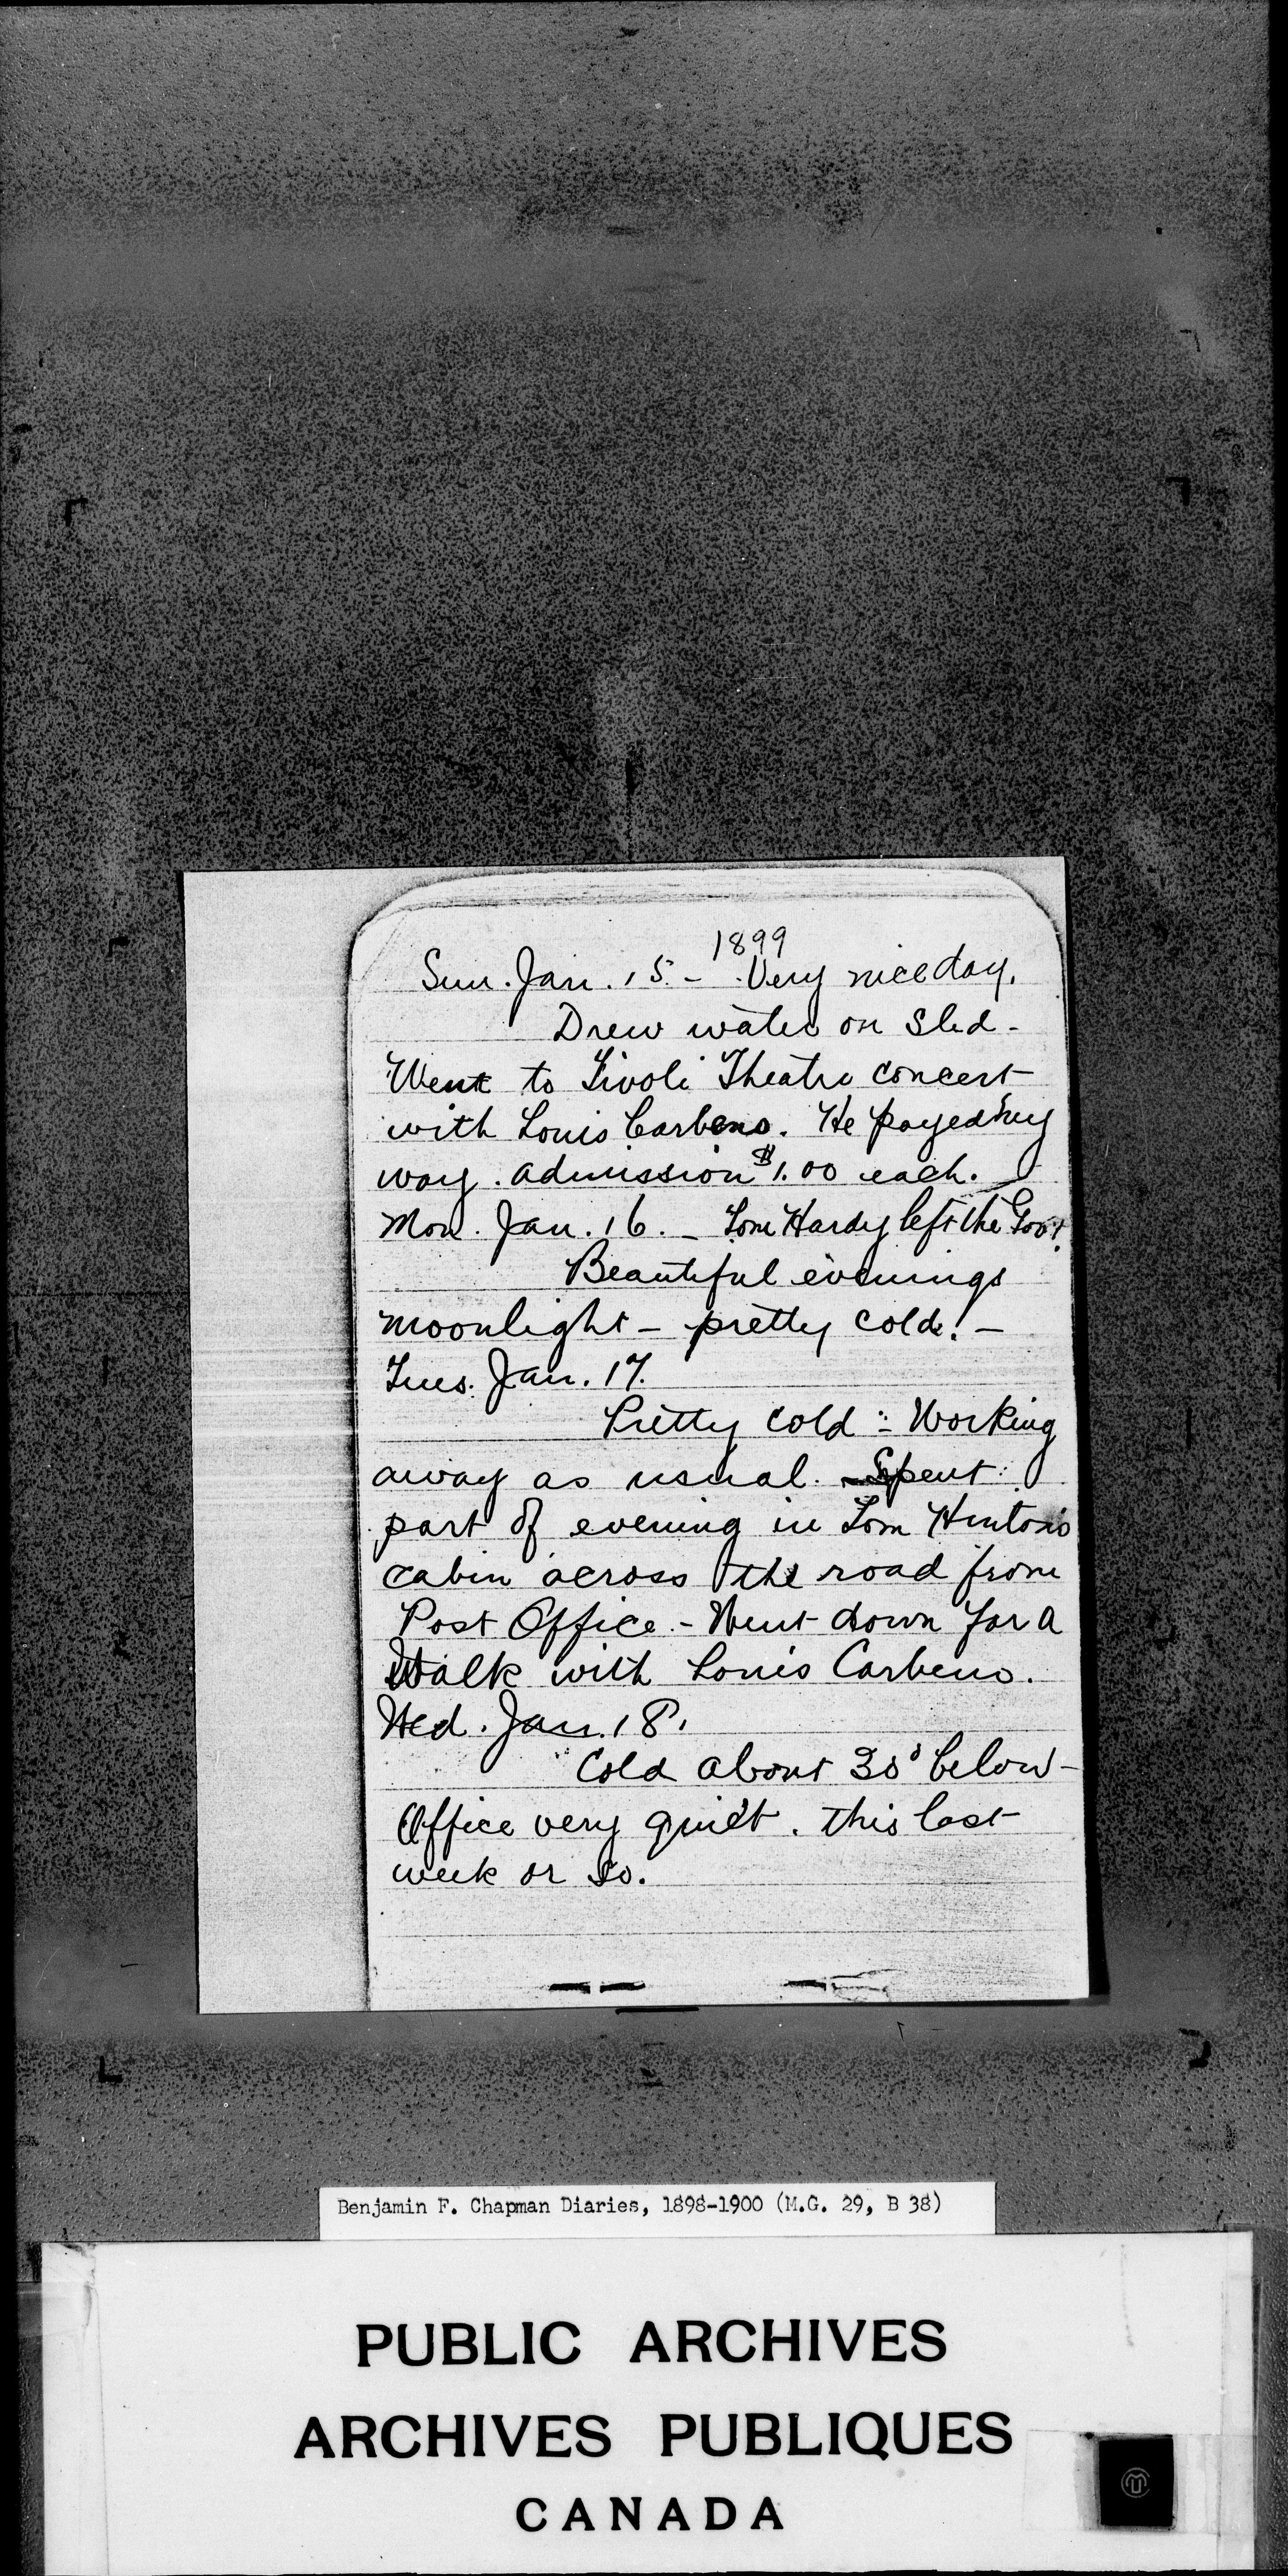 1899
Sun. Jan. 15. - Very nice day.
Drew water on sled -
Went to Tivoli Theatre concert
with Louis Carbeno. He payed my
way. admission $1.00 each.
Mon. Jan. 16. - Tom Hardy left the Govt.
Beautiful evenings
moonlight - pretty cold! -
Tues. Jan. 17.
Pretty cold - Working
away as usual. - Spent
part of evening in Tom Hintons
cabin across the road from
Post Office. - Went down for a
Walk with Louis Carbeno.
Wed. Jan. 18.
Cold about 30° below -
Office very quiet. this last
week or so.
Benjamin F. Chapman Diaries, 1898-1900 (M.G. 29, B 38)
PUBLIC ARCHIVES
ARCHIVES PUBLIQUES
CANADA